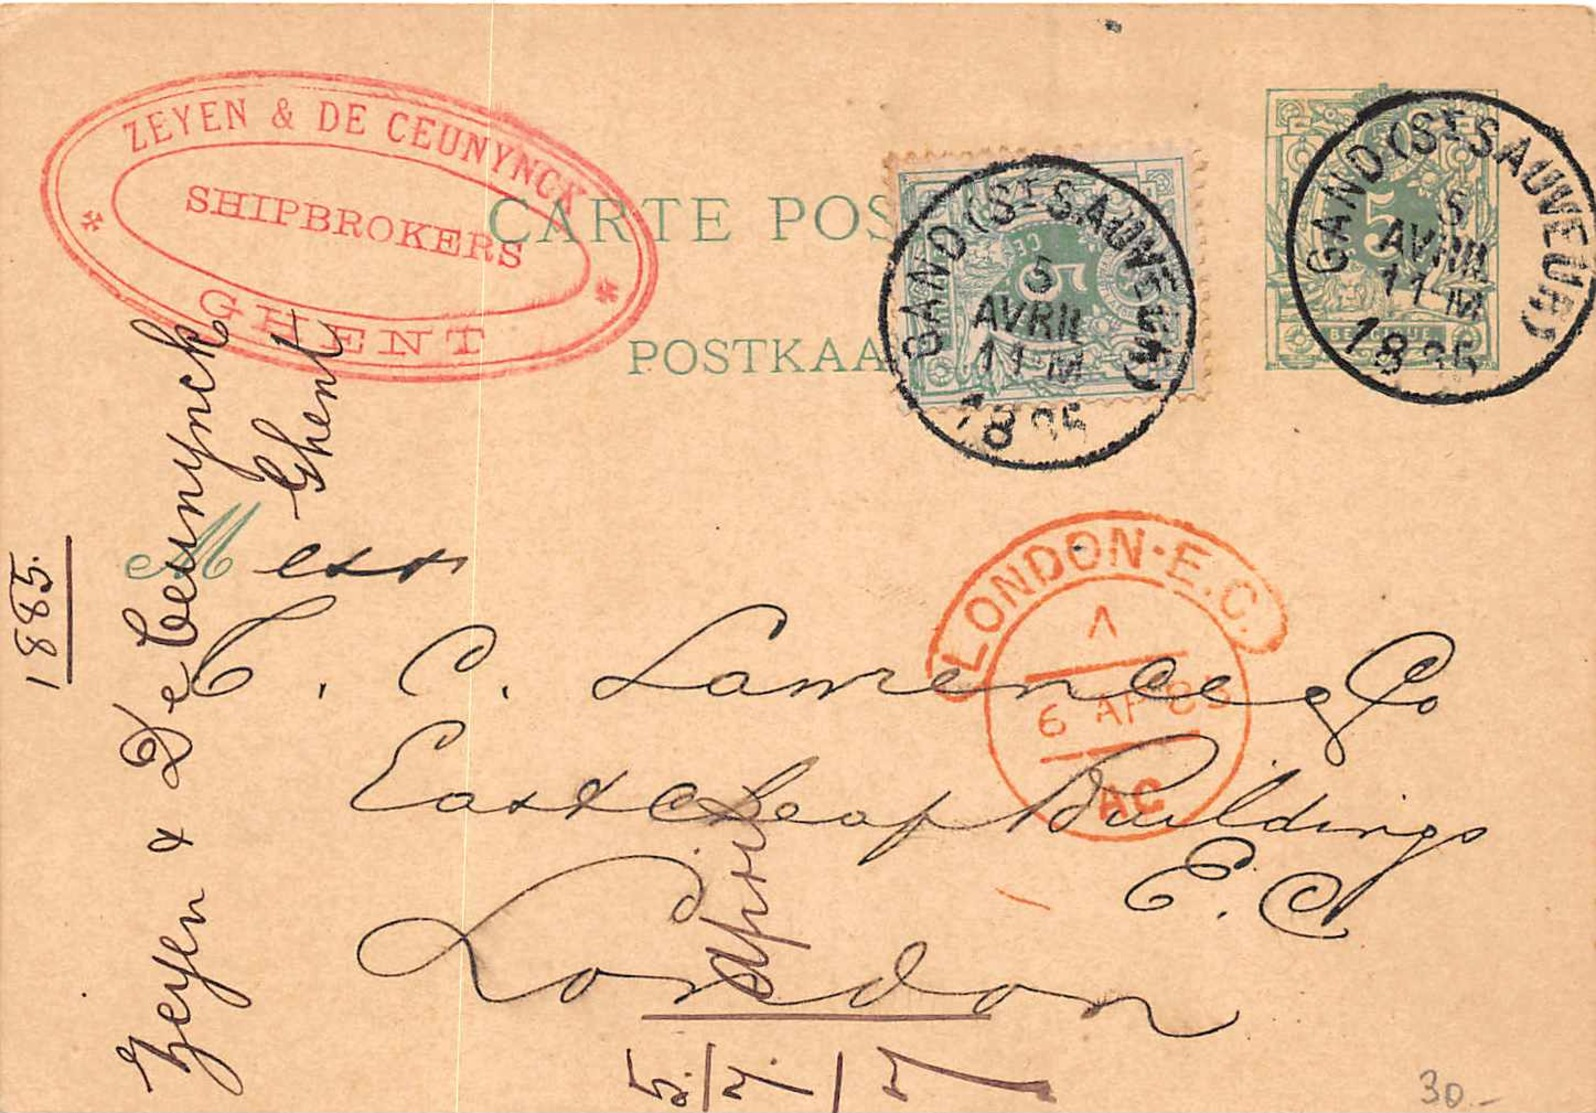 ZEYEN & DE CEUNYNCK
SHIPBROKERS
GHENT
CARTE POS
POSTKAA
GAND (St SAUVEUR)
5
AVRIL
11-M
1885
5
GAND (St SAUVEUR)
5
AVRIL
11-M
1885
5
BELGIQUE
Messrs
C. C. Lawrence & Co
Eastcheap Buildings
E.C.
London
LONDON·E.C.
A
6 AP 85
AC
Zeyen & De Ceunynck
Ghent
1885.
april
5./4.
30.-